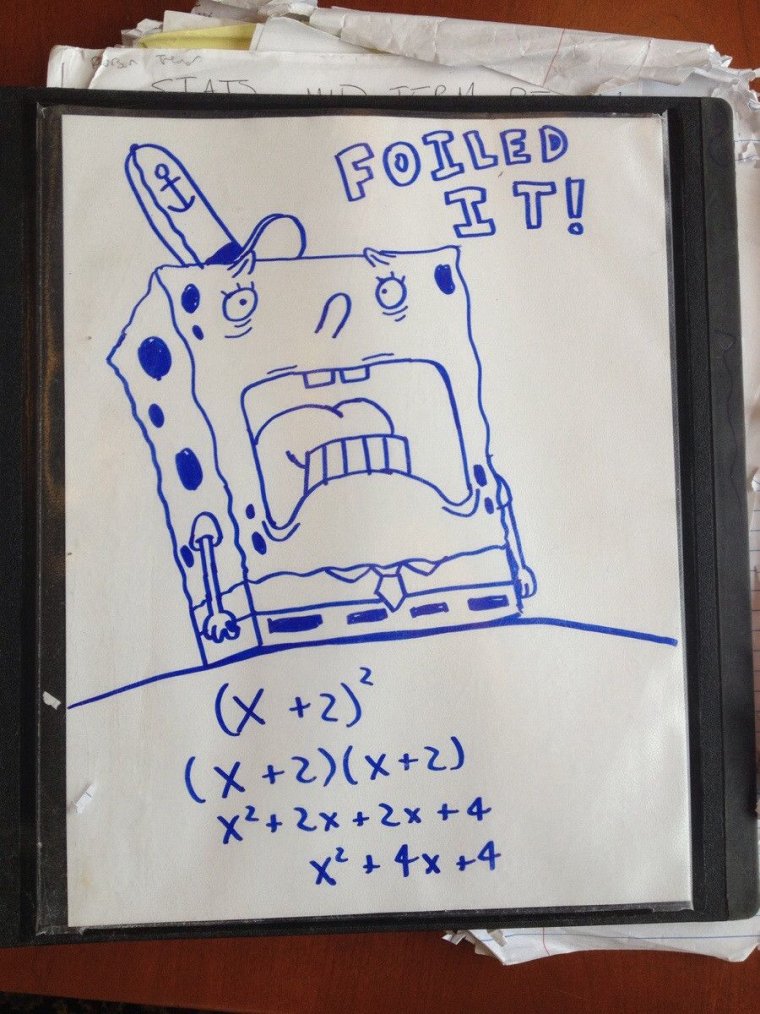 STATS MID TERM
FOILED
IT!
(x + 2)²
(x + 2)(x + 2)
x² + 2x + 2x + 4
x² + 4x + 4